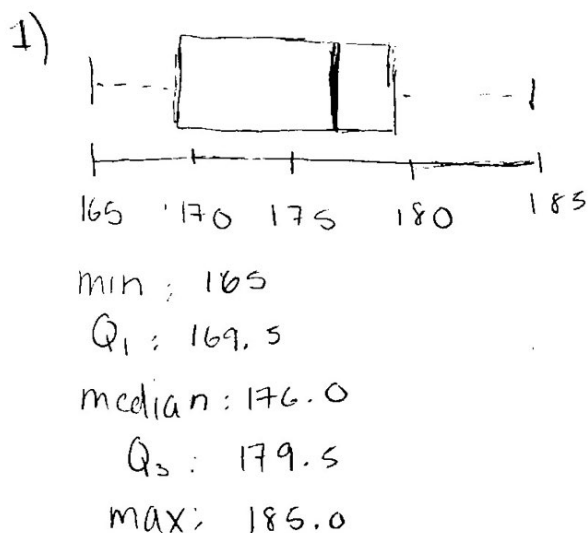 1)
165 170 175 180 185
min: 165
Q₁: 169.5
median: 176.0
Q₃: 179.5
max: 185.0